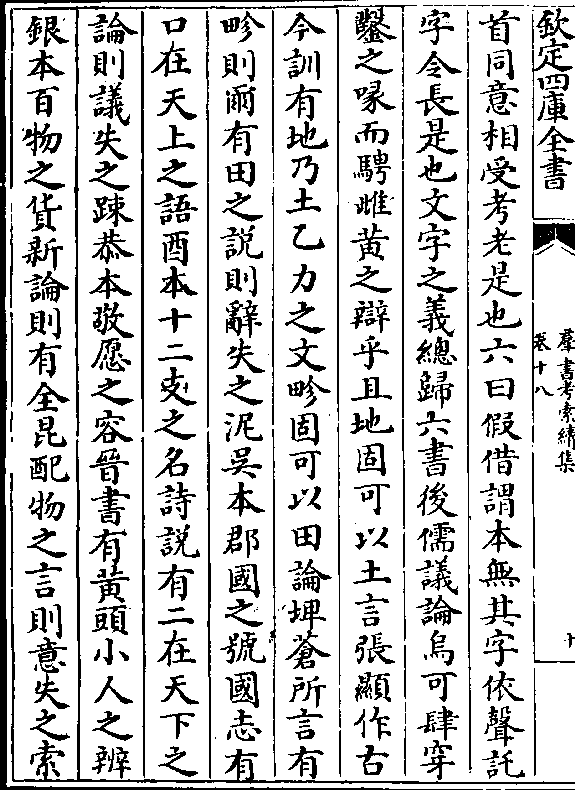 欽定四庫全書
羣書考索續集
卷十八
十
首同意相受考老是也六曰假借謂本無其字依聲託
字令長是也文字之義總歸六書後儒議論烏可肆穿
鑿之喙而騁雌黃之辯乎且地固可以土言張顯作古
今訓有地乃土乙力之文畛固可以田論埤蒼所言有
畛則爾有田之說則辭失之泥吳本郡國之號國志有
口在天上之語酉本十二支之名詩説有二在天下之
論則議失之踈恭本敬愿之容晉書有黃頭小人之辨
銀本百物之貨新論則有全昆配物之言則意失之索